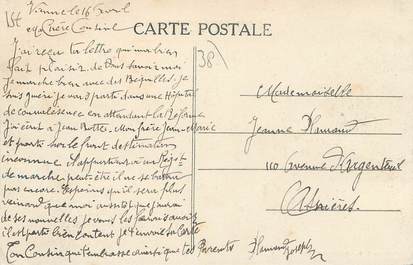 CARTE POSTALE
38
Vienne le 16 Avril
Chère Cousine
J'ai reçu ta lettre qui m'a bien
fait plaisir de savoir moi
je marche bien avec des Béquilles. je
suis guéri je vais partir dans une Hôpital
de convalescence en attendant la Réforme
J'écrit à Jean. Mon frère Jean-Marie
et partis sur le front destination
inconnue. Il appartient à un Régt
de marche peut-être il ne se battra
pas encore. Espérons qu'il sera plus
veinard que moi aussitôt que j'aurai
de ses nouvelles je vous les ferai savoir
il est parti bien content je t'envoie sa Carte
Ton Cousin qui t'embrasse ainsi que tes Parents
Hamond Joseph
Mademoiselle
Jeanne Hamond
110 Avenue d'Argenteuil
Asnières